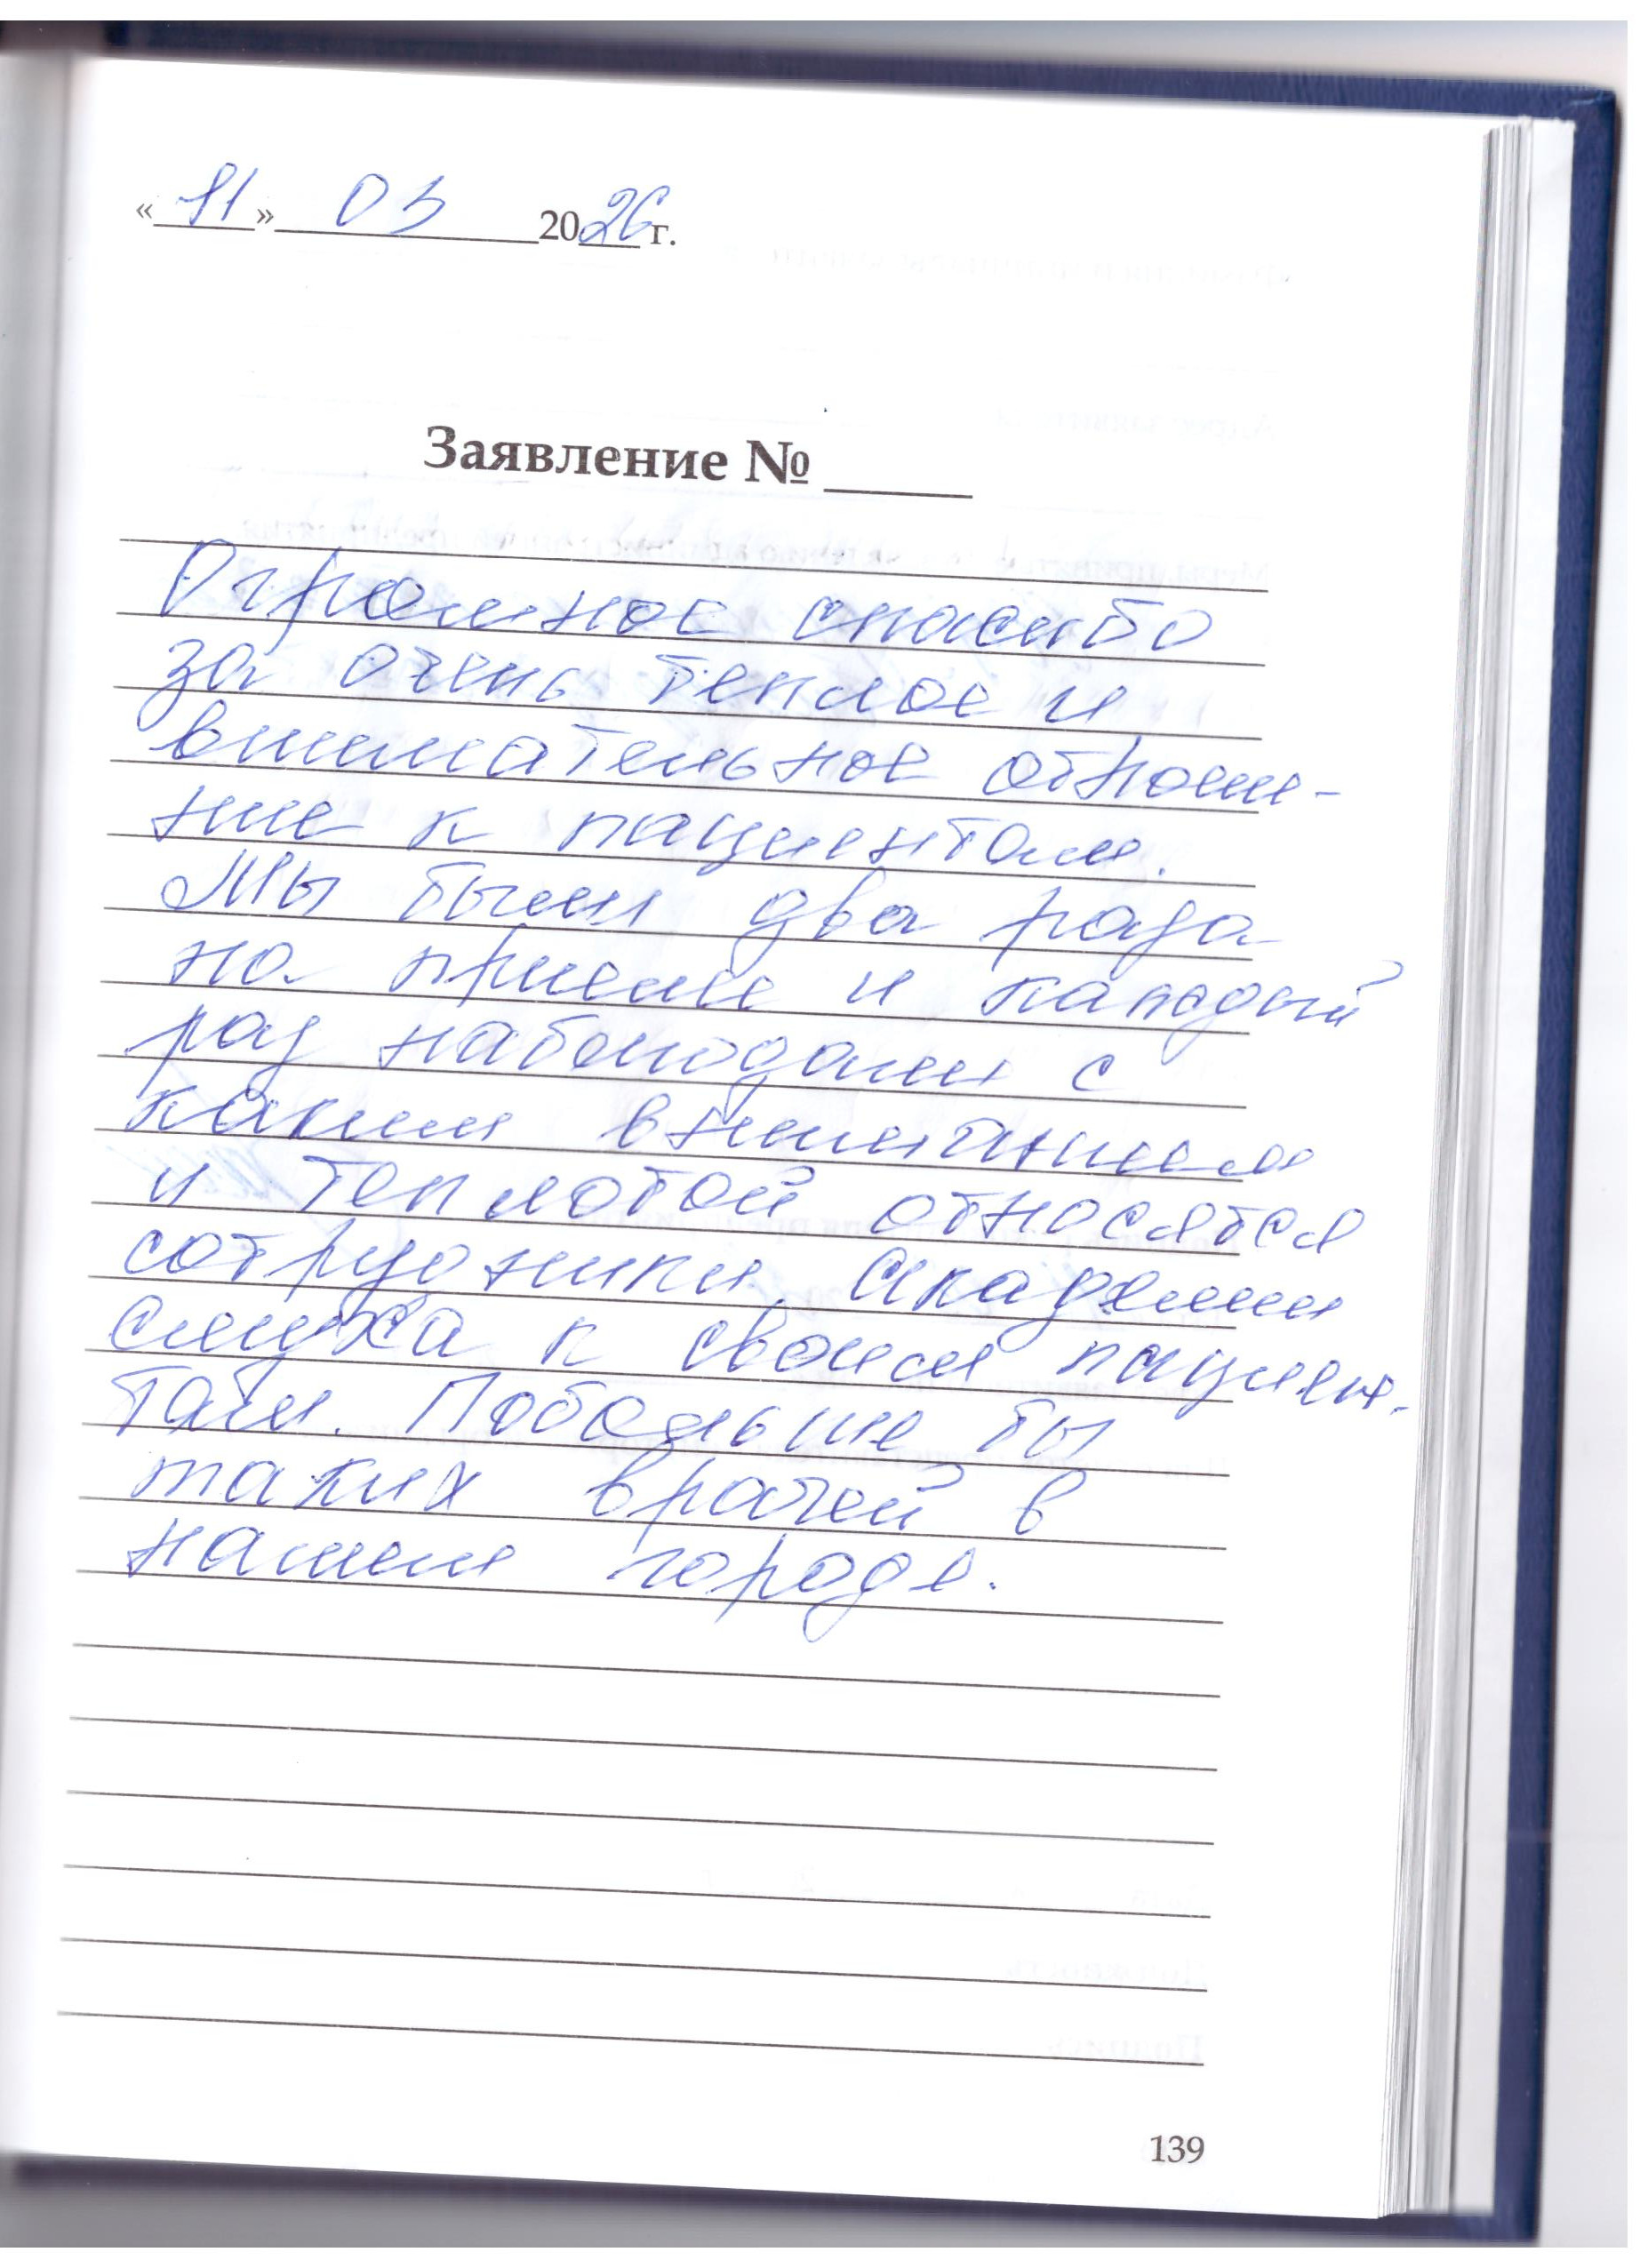 «11» 03 2026 г.
Заявление №
Огромное спасибо
за очень теплое и
внимательное отноше-
ние к пациентам.
Мы были два раза
на приеме и каждый
раз наблюдали с
каким вниманием
и теплотой относятся
сотрудники Академии
слуха к своим пациен-
там. Побольше бы
таких врачей в
нашем городе.
139